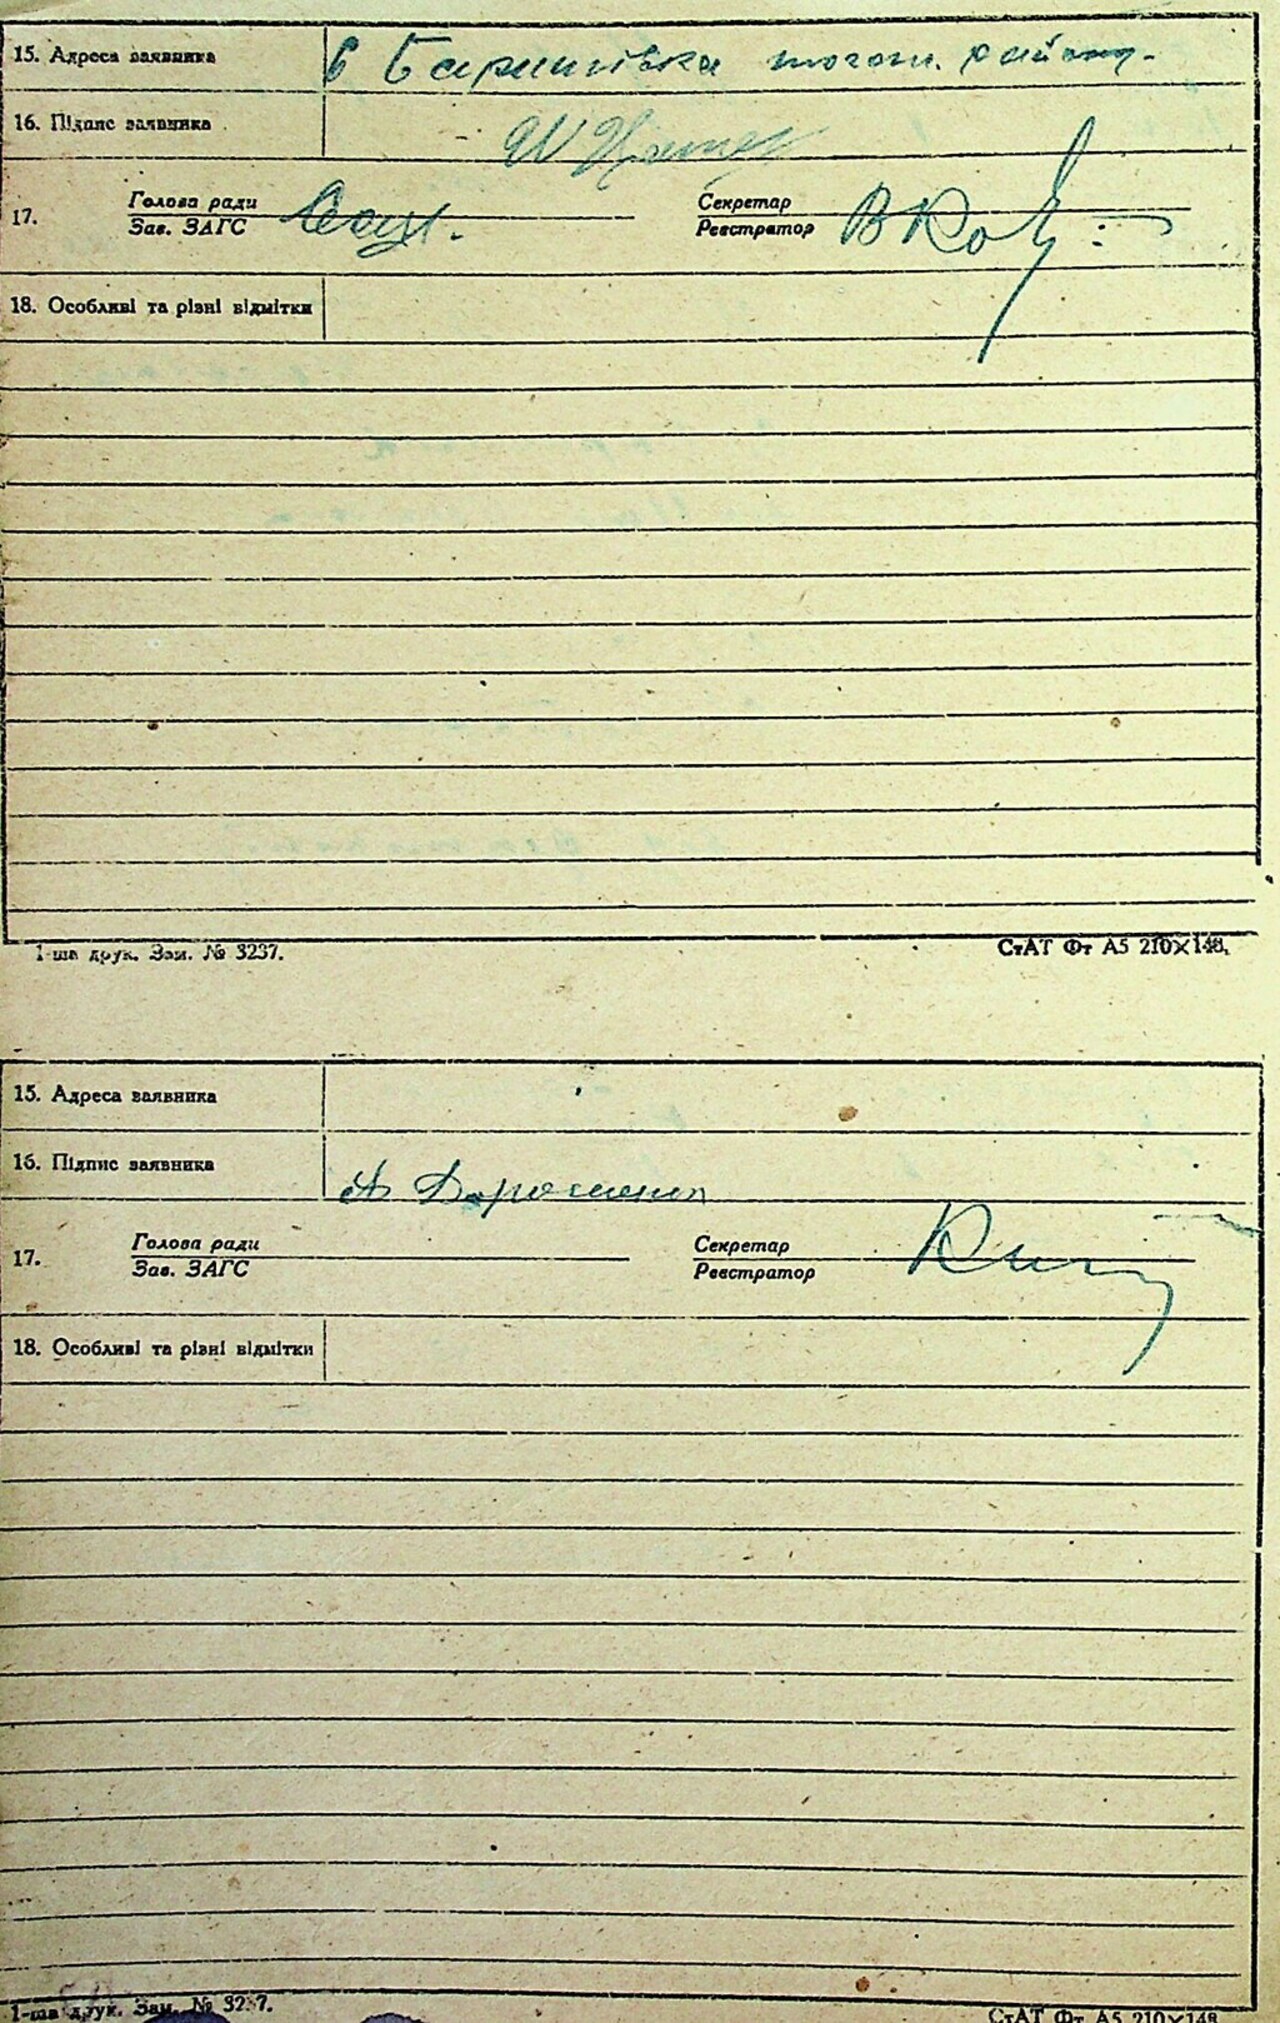 15. Адреса заявника
с Баришівка тогож. району.
16. Підпис заявника
17.
Голова ради
Зав. ЗАГС
Секретар
Реєстратор
18. Особливі та різні відмітки
1-ша друк. Зам. № 3237.
СтАТ Фт А5 210×148.
15. Адреса заявника
16. Підпис заявника
17.
Голова ради
Зав. ЗАГС
Секретар
Реєстратор
18. Особливі та різні відмітки
1-ша друк. Зам. № 3237.
СтАТ Фт А5 210×148